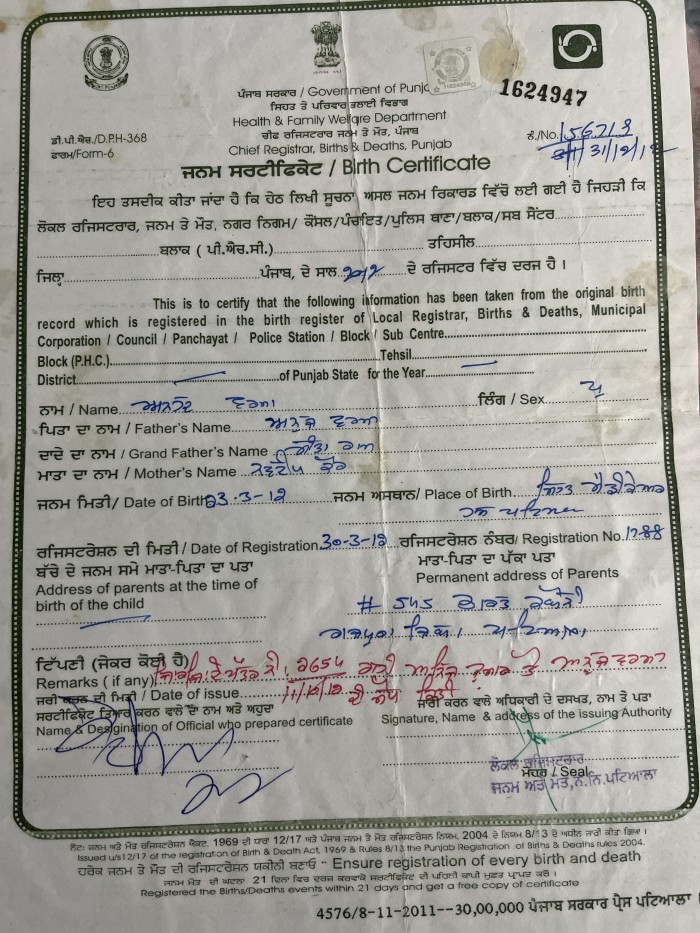 ਪੰਜਾਬ ਸਰਕਾਰ / Government of Punjab
1624947
ਸਿਹਤ ਤੇ ਪਰਿਵਾਰ ਭਲਾਈ ਵਿਭਾਗ
Health & Family Welfare Department
ਡੀ.ਪੀ.ਐਚ./D.P.H-368
ਚੀਫ ਰਜਿਸਟਰਾਰ ਜਨਮ ਤੇ ਮੌਤ, ਪੰਜਾਬ
ਨੰ./No.
ਫਾਰਮ/Form-6
Chief Registrar, Births & Deaths, Punjab
ਜਨਮ ਸਰਟੀਫਿਕੇਟ / Birth Certificate
ਇਹ ਤਸਦੀਕ ਕੀਤਾ ਜਾਂਦਾ ਹੈ ਕਿ ਹੇਠ ਲਿਖੀ ਸੂਚਨਾ ਅਸਲ ਜਨਮ ਰਿਕਾਰਡ ਵਿੱਚੋਂ ਲਈ ਗਈ ਹੈ ਜਿਹੜੀ ਕਿ
ਲੋਕਲ ਰਜਿਸਟਰਾਰ, ਜਨਮ ਤੇ ਮੌਤ, ਨਗਰ ਨਿਗਮ/ ਕੌਂਸਲ/ਪੰਚਾਇਤ/ਪੁਲਿਸ ਥਾਣਾ/ਬਲਾਕ/ਸਬ ਸੈਂਟਰ
ਬਲਾਕ ( ਪੀ.ਐਚ.ਸੀ.) ਤਹਿਸੀਲ
ਜਿਲ੍ਹਾ ਪੰਜਾਬ, ਦੇ ਸਾਲ ਦੇ ਰਜਿਸਟਰ ਵਿੱਚ ਦਰਜ ਹੈ ।
This is to certify that the following information has been taken from the original birth
record which is registered in the birth register of Local Registrar, Births & Deaths, Municipal
Corporation / Council / Panchayat / Police Station / Block / Sub Centre
Block (P.H.C.) Tehsil
District of Punjab State for the Year
ਨਾਮ / Name ਵਰਮਾ ਲਿੰਗ / Sex ਪੁ
ਪਿਤਾ ਦਾ ਨਾਮ / Father's Name ਅਨੁਜ ਵਰਮਾ
ਦਾਦੇ ਦਾ ਨਾਮ / Grand Father's Name ਰਾਮ
ਮਾਤਾ ਦਾ ਨਾਮ / Mother's Name ਕੌਰ
ਜਨਮ ਮਿਤੀ/ Date of Birth 23-3-12 ਜਨਮ ਅਸਥਾਨ/ Place of Birth
ਰਜਿਸਟਰੇਸ਼ਨ ਦੀ ਮਿਤੀ / Date of Registration 30-3-12 ਰਜਿਸਟਰੇਸ਼ਨ ਨੰਬਰ/ Registration No. 1788
ਬੱਚੇ ਦੇ ਜਨਮ ਸਮੇਂ ਮਾਤਾ-ਪਿਤਾ ਦਾ ਪਤਾ
ਮਾਤਾ-ਪਿਤਾ ਦਾ ਪੱਕਾ ਪਤਾ
Address of parents at the time of
birth of the child
Permanent address of Parents
# 545
ਟਿੱਪਣੀ (ਜੇਕਰ ਕੋਈ ਹੈ)
Remarks ( if any) 2654
ਜਾਰੀ ਕਰਨ ਦੀ ਮਿਤੀ / Date of issue 11/12/12
ਸਰਟੀਫਿਕੇਟ ਤਿਆਰ ਕਰਨ ਵਾਲੇ ਦਾ ਨਾਮ ਅਤੇ ਅਹੁਦਾ
Name & Designation of Official who prepared certificate
ਜਾਰੀ ਕਰਨ ਵਾਲੇ ਅਧਿਕਾਰੀ ਦੇ ਦਸਖਤ, ਨਾਮ ਤੇ ਪਤਾ
Signature, Name & address of the issuing Authority
ਲੋਕਲ ਰਜਿਸਟਰਾਰ
ਮੋਹਰ / Seal
ਜਨਮ ਅਤੇ ਮੌਤ, ਨ.ਨਿ.ਪਟਿਆਲਾ
ਨੋਟ: ਜਨਮ ਅਤੇ ਮੌਤ ਰਜਿਸਟਰੇਸ਼ਨ ਐਕਟ, 1969 ਦੀ ਧਾਰਾ 12/17 ਅਤੇ ਪੰਜਾਬ ਜਨਮ ਤੇ ਮੌਤ ਰਜਿਸਟਰੇਸ਼ਨ ਨਿਯਮ, 2004 ਦੇ ਨਿਯਮ 8/13 ਦੇ ਅਧੀਨ ਜਾਰੀ ਕੀਤਾ ਗਿਆ ।
Issued u/s12/17 of the registration of Birth & Death Act, 1969 & Rules 8/13 the Punjab Registration of Births & Deaths rules 2004.
ਹਰੇਕ ਜਨਮ ਤੇ ਮੌਤ ਦੀ ਰਜਿਸਟਰੇਸ਼ਨ ਯਕੀਨੀ ਬਣਾਓ " Ensure registration of every birth and death
ਜਨਮ ਮੌਤ ਦੀ ਘਟਨਾ 21 ਦਿਨਾਂ ਵਿੱਚ ਦਰਜ ਕਰਵਾਕੇ ਸਰਟੀਫਿਕੇਟ ਦੀ ਪਹਿਲੀ ਕਾਪੀ ਮੁਫਤ ਪ੍ਰਾਪਤ ਕਰੋ ।
Registered the Births/Deaths events within 21 days and get a free copy of certificate
4576/8-11-2011--30,00,000 ਪੰਜਾਬ ਸਰਕਾਰ ਪ੍ਰੈਸ ਪਟਿਆਲਾ ।